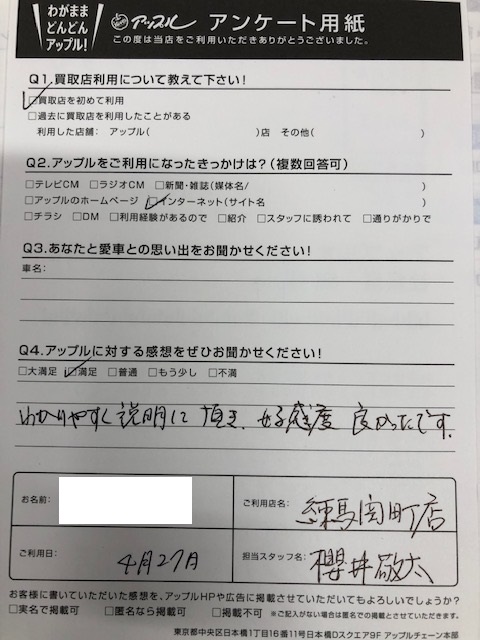 わがまま
どんどん
アップル!
アップル アンケート用紙
この度は当店をご利用いただきありがとうございました。
Q1.買取店利用について教えて下さい!
☑買取店を初めて利用
□過去に買取店を利用したことがある
利用した店舗: アップル( )店 その他( )
Q2.アップルをご利用になったきっかけは?(複数回答可)
□テレビCM □ラジオCM □新聞・雑誌(媒体名/ )
□アップルのホームページ ☑インターネット(サイト名 )
□チラシ □DM □利用経験があるので □紹介 □スタッフに誘われて □通りがかりで
Q3.あなたと愛車との思い出をお聞かせください!
車名:
Q4.アップルに対する感想をぜひお聞かせください!
□大満足 ☑満足 □普通 □もう少し □不満
わかりやすく説明して頂き、好感度良かったです。
お名前:
ご利用店名: 練馬関町店
ご利用日: 4月27日
担当スタッフ名: 櫻井敬太
お客様に書いていただいた感想を、アップルHPや広告に掲載させていただいてもよろしいでしょうか?
□実名で掲載可 □匿名なら掲載可 □掲載不可 ※ご記入がない場合は匿名での掲載とさせていただきます。
東京都中央区日本橋1丁目16番11号日本橋Dスクエア5F アップルチェーン本部